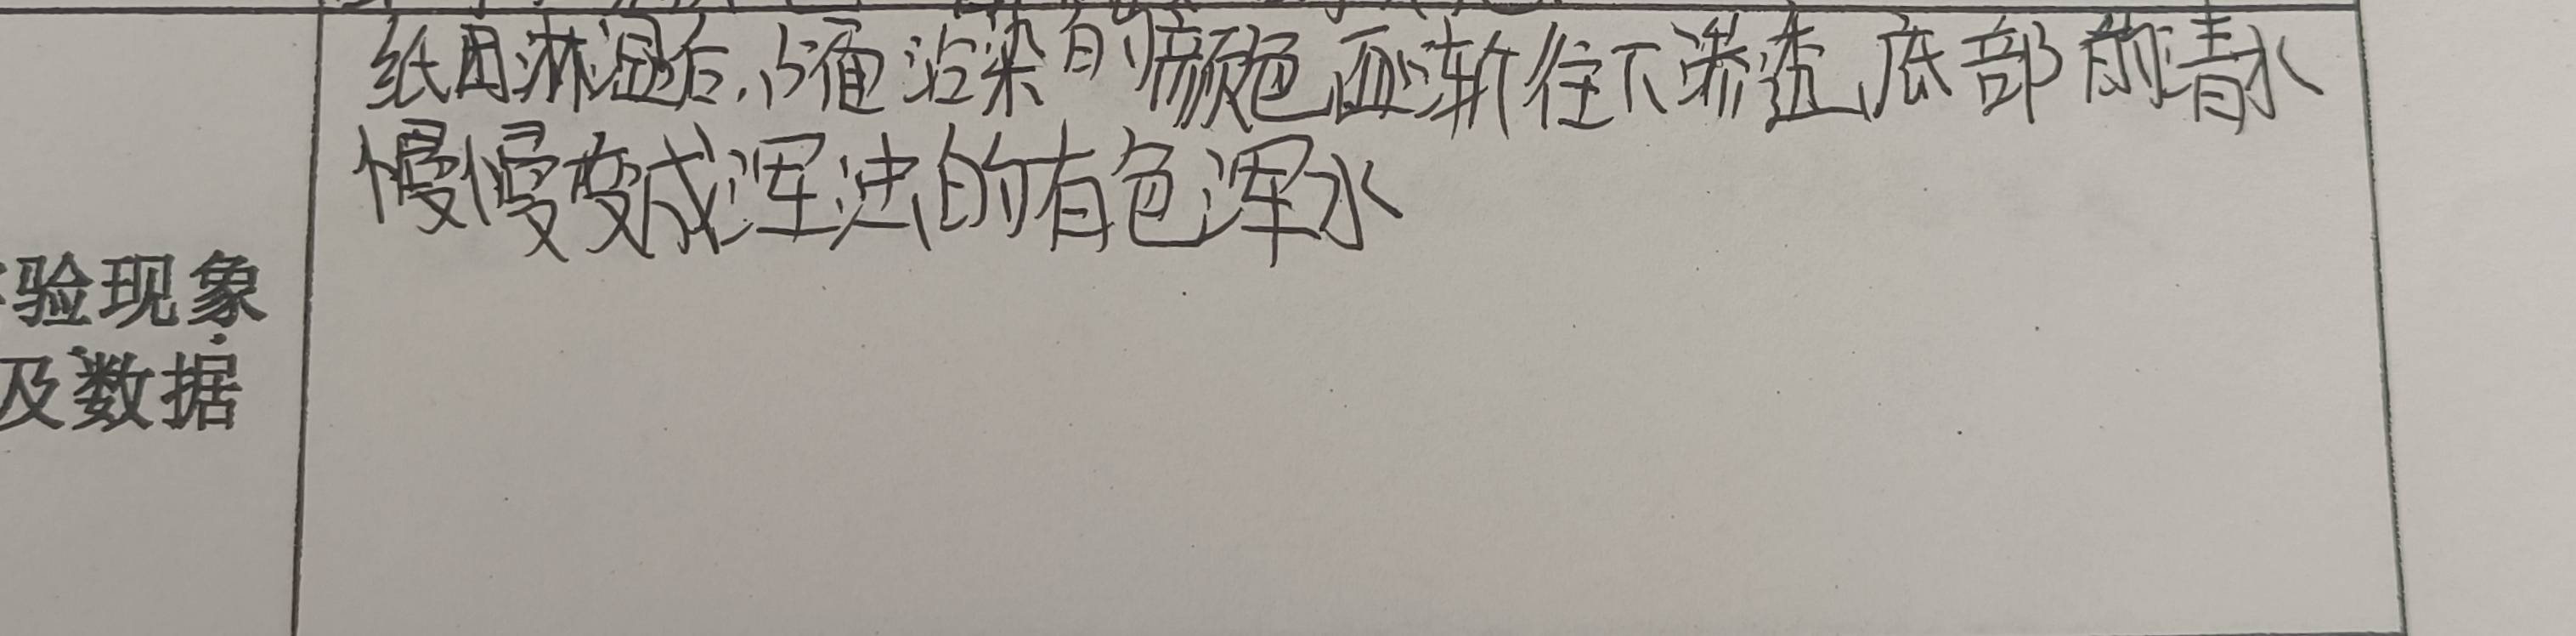 纸团淋湿后，污面沾染的颜色逐渐往下渗透，底部的清水
慢慢变成浑浊的有色浑水
验现象
及数据